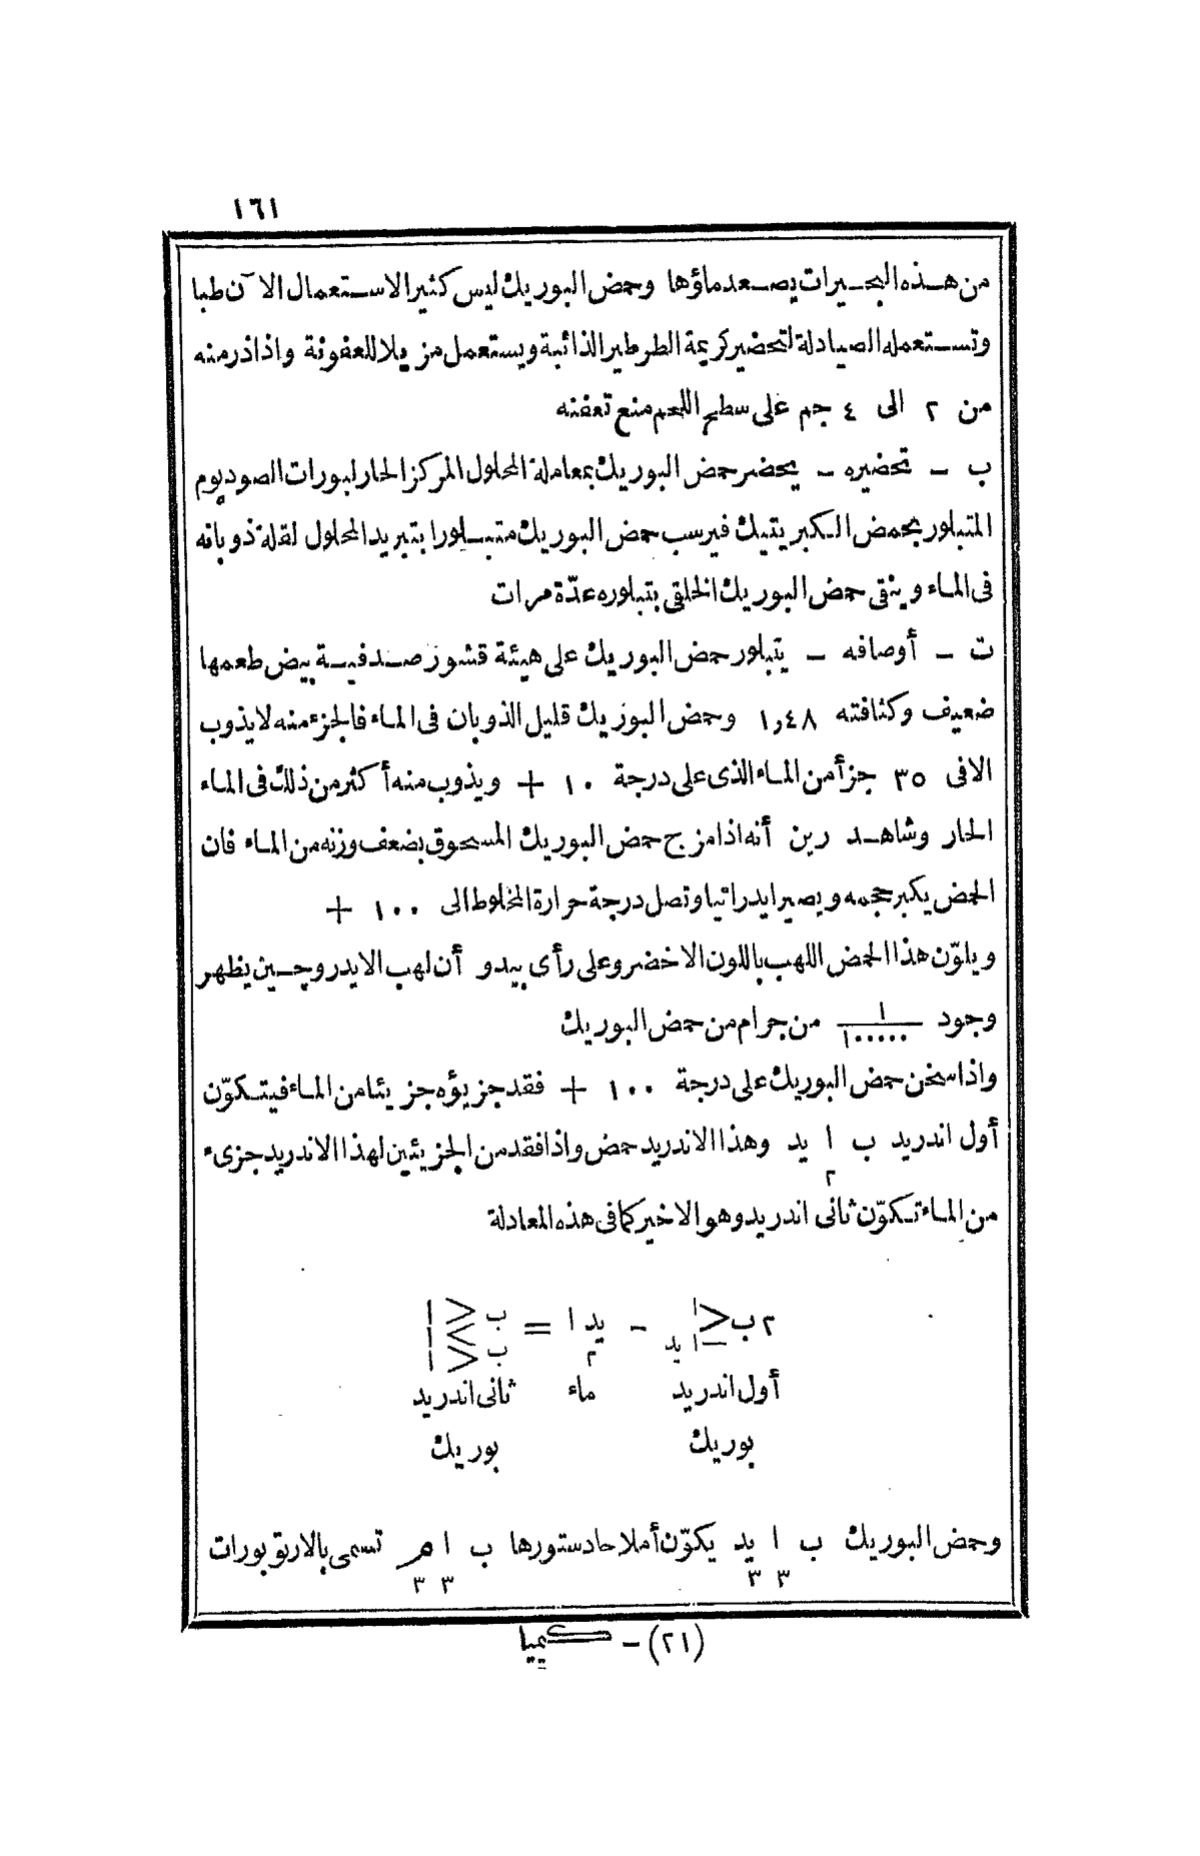 ١٦١
من هذه البحيرات يصعد ماؤها وحمض البوريك ليس كثير الاستعمال الآن طبا
وتستعمله الصيادلة لتحضير كريمة الطرطير الذائبة ويستعمل مزيلا للعفونة واذا ذر منه
من ٢ الى ٤ جم على سطح اللحم منع تعفنه
ب – تحضيره – يحضر حمض البوريك بمعاملة المحلول المركز الحار لبورات الصوديوم
المتبلور بحمض الكبريتيك فيرسب حمض البوريك متبلورا بتبريد المحلول لقلة ذوبانه
فى الماء وينقى حمض البوريك الخلقى بتبلوره عدّة مرات
ت – أوصافه – يتبلور حمض البوريك على هيئة قشور صدفية بيض طعمها
ضعيف وكثافته ١٫٤٨ وحمض البوريك قليل الذوبان فى الماء فالجزء منه لا يذوب
الا فى ٣٥ جزأ من الماء الذى على درجة ١٠ + ويذوب منه أكثر من ذلك فى الماء
الحار وشاهد رين أنه اذا مزج حمض البوريك المسحوق بضعف وزنه من الماء فان
الحمض يكبر حجمه ويصير ايدراتيا وتصل درجة حرارة المخلوط الى ١٠٠ +
ويلوّن هذا الحمض اللهب باللون الاخضر وعلى رأى بيدو أن لهب الايدروچين يظهر
وجود ١/١٠٠٠٠٠ من جرام من حمض البوريك
واذا سخن حمض البوريك على درجة ١٠٠ + فقد جزيؤه جزيئا من الماء فيتكوّن
أول اندريد ب ا٢ يد وهذا الاندريد حمض واذا فقد من الجزيئين لهذا الاندريد جزىء
من الماء تكوّن ثانى اندريد وهو الاخير كما فى هذه المعادلة
٢ ب < ا – ا يد – يد٢ ا = ب < ا > ا ب < ا
أول اندريد ماء ثانى اندريد
بوريك بوريك
وحمض البوريك ب ا٣ يد٣ يكوّن أملاحا دستورها ب ا٣ م٣ تسمى بالارتوبورات
(٢١) – كيميا